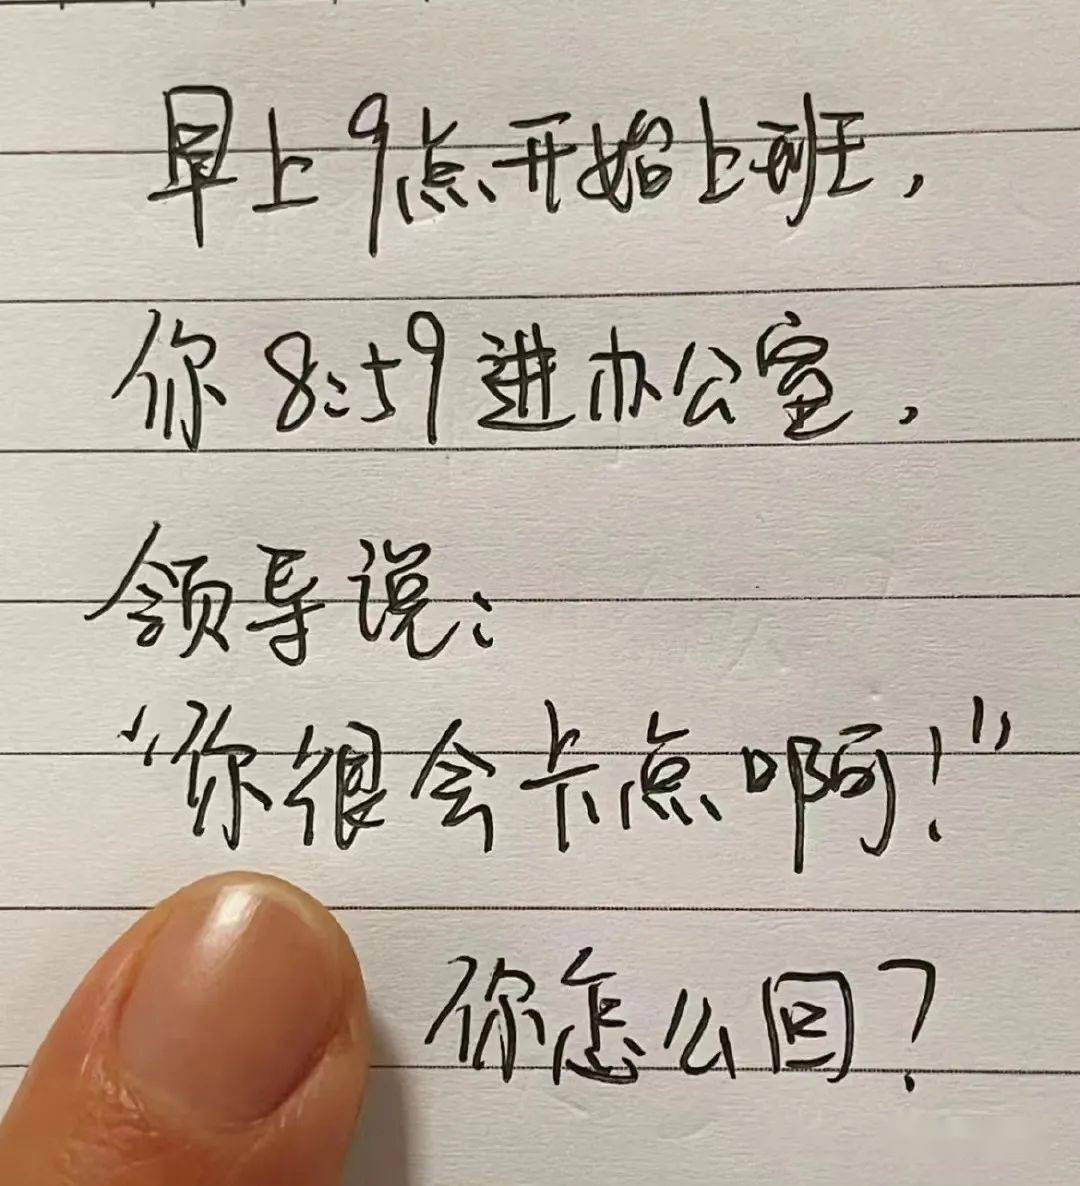 早上9点开始上班，
你8:59进办公室，
领导说：
“你很会卡点啊！”
你怎么回？